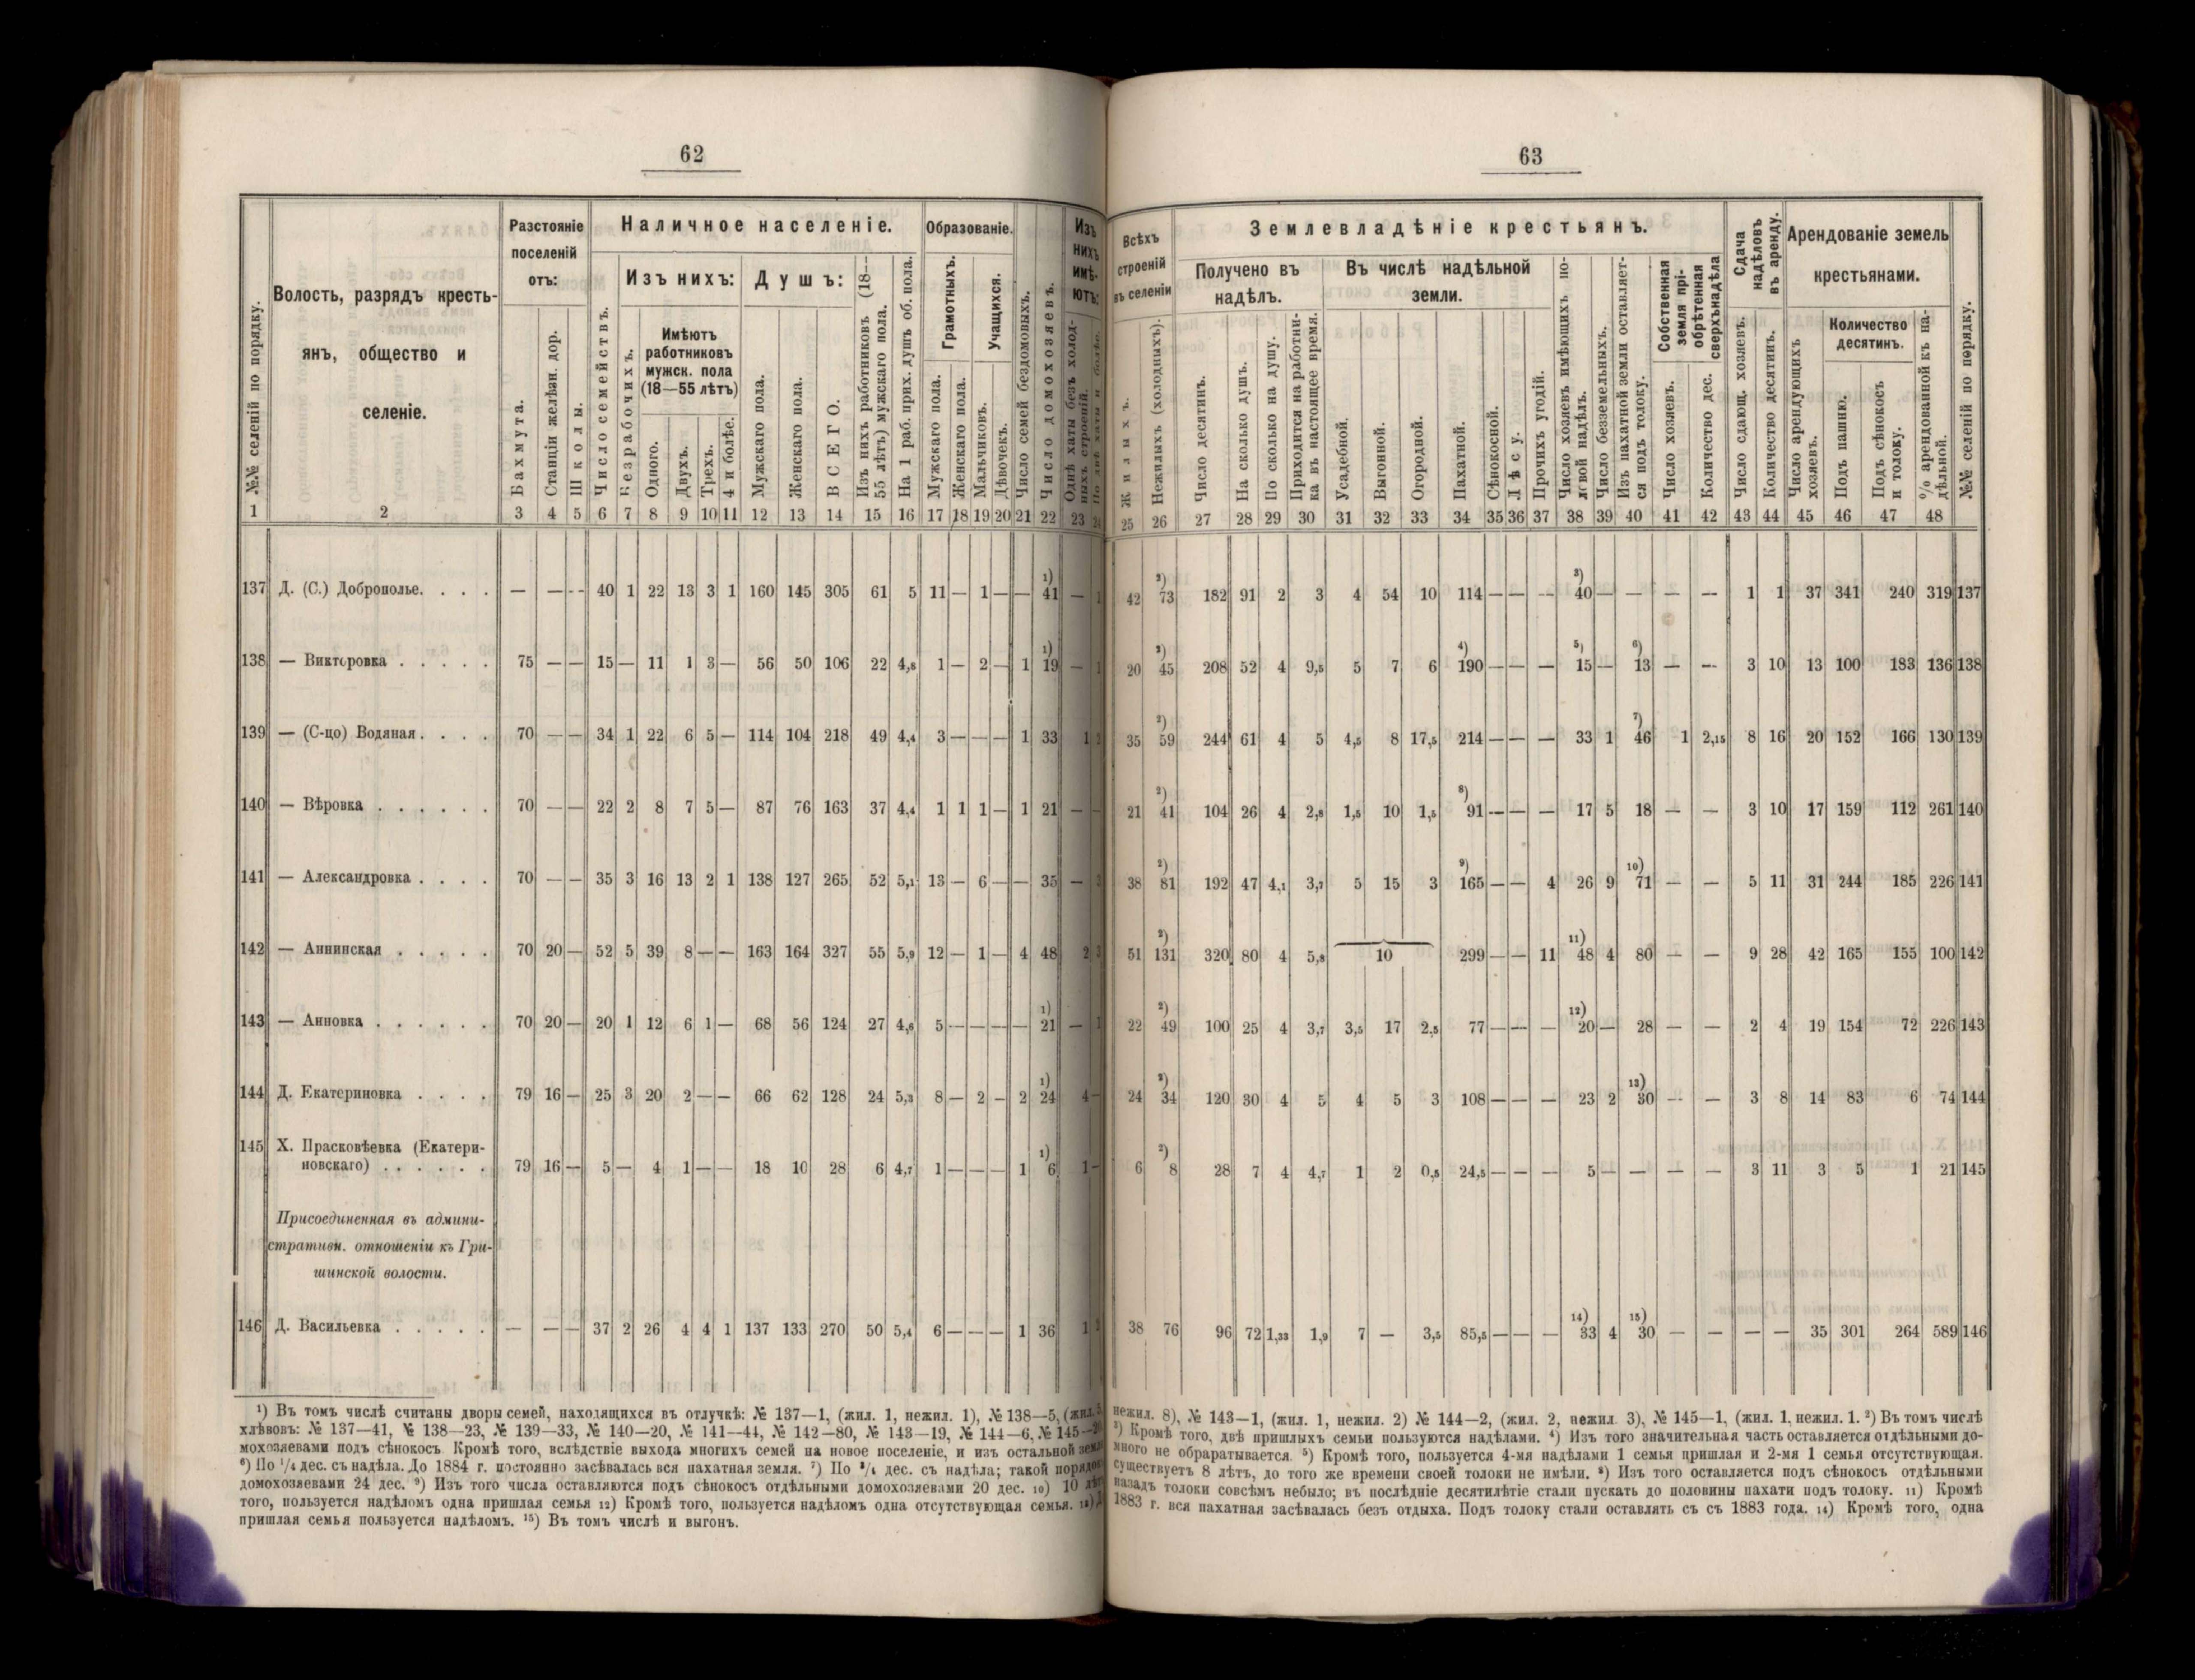 62
№№ селеній по порядку.
Волость, разрядъ кресть-
янъ, общество и
селеніе.
Разстояніе
поселеній
отъ:
Бахмута.
Станціи желѣзн. дор.
Школы.
Наличное населеніе.
Число семействъ.
Изъ нихъ:
Безрабочихъ.
Имѣютъ
работниковъ
мужск. пола
(18—55 лѣтъ)
Одного.
Двухъ.
Трехъ.
4 и болѣе.
Душъ:
Мужскаго пола.
Женскаго пола.
ВСЕГО.
Изъ нихъ работниковъ (18—
55 лѣтъ) мужскаго пола.
На 1 раб. прих. душъ об. пола.
Образованіе.
Грамотныхъ.
Мужскаго пола.
Женскаго пола.
Учащихся.
Мальчиковъ.
Дѣвочекъ.
Число семей бездомовыхъ.
Число домохозяевъ.
Изъ
нихъ
имѣ-
ютъ:
Однѣ хаты безъ холод-
ныхъ строеній.
По двѣ хаты и болѣе.
1 2 3 4 5 6 7 8 9 10 11 12 13 14 15 16 17 18 19 20 21 22 23 24
137 Д. (С.) Доброполье. . . . — — -- 40 1 22 13 3 1 160 145 305 61 5 11 — 1 — — 1) 41 — 1
138 — Викторовка . . . . . 75 — — 15 — 11 1 3 — 56 50 106 22 4,8 1 — 2 — 1 1) 19 — 1
139 — (С-цо) Водяная. . . . 70 — — 34 1 22 6 5 — 114 104 218 49 4,4 3 — — — 1 33 1 2
140 — Вѣровка . . . . . . 70 — — 22 2 8 7 5 — 87 76 163 37 4,4 1 1 1 — 1 21 — —
141 — Александровка . . . . 70 — — 35 3 16 13 2 1 138 127 265 52 5,1 13 — 6 — — 35 — 3
142 — Аннинская . . . . . 70 20 — 52 5 39 8 — — 163 164 327 55 5,9 12 — 1 — 4 48 2 3
143 — Анновка . . . . . . 70 20 — 20 1 12 6 1 — 68 56 124 27 4,6 5 — — — — 1) 21 — 1
144 Д. Екатериновка . . . . 79 16 — 25 3 20 2 — — 66 62 128 24 5,3 8 — 2 — 2 1) 24 4 —
145 Х. Прасковѣевка (Екатери-
новскаго) . . . . . . 79 16 — 5 — 4 1 — — 18 10 28 6 4,7 1 — — — 1 1) 6 1 —
Присоединенная въ админи-
стративн. отношеніи къ Гри-
шинской волости.
146 Д. Васильевка . . . . . — — — 37 2 26 4 4 1 137 133 270 50 5,4 6 — — — 1 36 1 2
¹) Въ томъ числѣ считаны дворы семей, находящихся въ отлучкѣ: № 137—1, (жил. 1, нежил. 1), № 138—5, (жил. 5,
хлѣвовъ: № 137—41, № 138—23, № 139—33, № 140—20, № 141—44, № 142—80, № 143—19, № 144—6, № 145—
мохозяевами подъ сѣнокосъ. Кроме того, вслѣдствіе выхода многихъ семей на новое поселеніе, и изъ остальной земли
⁶) По ¹/₄ дес. съ надѣла. До 1884 г. постоянно засѣвалась вся пахатная земля. ⁷) По ³/₄ дес. съ надѣла; такой порядокъ
домохозяевами 24 дес. ⁹) Изъ того числа оставляются подъ сѣнокосъ отдѣльными домохозяевами 20 дес. 10) 10 лѣтъ
того, пользуется надѣломъ одна пришлая семья 12) Кромѣ того, пользуется надѣломъ одна отсутствующая семья. 13)
пришлая семья пользуется надѣломъ. ¹⁵) Въ томъ числѣ и выгонъ.
63
Всѣхъ
строеній
въ селеніи
Жилыхъ.
Нежилыхъ (холодныхъ).
Землевладѣніе крестьянъ.
Получено въ
надѣлъ.
Число десятинъ.
На сколько душъ.
По сколько на душу.
Приходится на работни-
ка въ настоящее время.
Въ числѣ надѣльной
земли.
Усадебной.
Выгонной.
Огородной.
Пахатной.
Сѣнокосной.
Лѣсу.
Прочихъ угодій.
Число хозяевъ имѣющихъ по-
левой надѣлъ.
Число безземельныхъ.
Изъ пахатной земли оставляет-
ся подъ толоку.
Собственная
земля прі-
обрѣтенная
сверхънадѣла
Число хозяевъ.
Количество дес.
Сдача
надѣловъ
въ аренду.
Число сдающ. хозяевъ.
Количество десятинъ.
Арендованіе земель
крестьянами.
Число арендующихъ
хозяевъ.
Количество
десятинъ.
Подъ пашню.
Подъ сѣнокосъ
и толоку.
% арендованной къ на-
дѣльной.
№№ селеній по порядку.
25 26 27 28 29 30 31 32 33 34 35 36 37 38 39 40 41 42 43 44 45 46 47 48
42 ²) 73 182 91 2 3 4 54 10 114 — — -- ³) 40 — — — — 1 1 37 341 240 319 137
20 ²) 45 208 52 4 9,5 5 7 6 ⁴) 190 — — — ⁵) 15 — ⁶) 13 — -- 3 10 13 100 183 136 138
35 ²) 59 244 61 4 5 4,5 8 17,5 214 — — — 33 1 ⁷) 46 1 2,15 8 16 20 152 166 130 139
21 ²) 41 104 26 4 2,8 1,5 10 1,5 ⁸) 91 — — — 17 5 18 — — 3 10 17 159 112 261 140
38 ²) 81 192 47 4,1 3,7 5 15 3 ⁹) 165 — — 4 26 9 10) 71 — — 5 11 31 244 185 226 141
51 ²) 131 320 80 4 5,8 10 299 — — 11 11) 48 4 80 — — 9 28 42 165 155 100 142
22 ²) 49 100 25 4 3,7 3,5 17 2,5 77 — — — 12) 20 — 28 — — 2 4 19 154 72 226 143
24 ²) 34 120 30 4 5 4 5 3 108 — — — 23 2 13) 30 -- — 3 8 14 83 6 74 144
6 ²) 8 28 7 4 4,7 1 2 0,5 24,5 — — — 5 — — — — 3 11 3 5 1 21 145
38 76 96 72 1,33 1,9 7 — 3,5 85,5 — — — 14) 33 4 15) 30 — — — — 35 301 264 589 146
нежил. 8), № 143—1, (жил. 1, нежил. 2) № 144—2, (жил. 2, нежил. 3), № 145—1, (жил. 1, нежил. 1. ²) Въ томъ числѣ
³) Кромѣ того, двѣ пришлыхъ семьи пользуются надѣлами. ⁴) Изъ того значительная часть оставляется отдѣльными до-
много не обраратывается. ⁵) Кромѣ того, пользуется 4-мя надѣлами 1 семья пришлая и 2-мя 1 семья отсутствующая.
существуетъ 8 лѣтъ, до того же времени своей толоки не имѣли. ⁸) Изъ того оставляется подъ сѣнокосъ отдѣльными
назадъ толоки совсѣмъ небыло; въ послѣдніе десятилѣтіе стали пускать до половины пахати подъ толоку. 11) Кромѣ
1883 г. вся пахатная засѣвалась безъ отдыха. Подъ толоку стали оставлять съ съ 1883 года. 14) Кромѣ того, одна